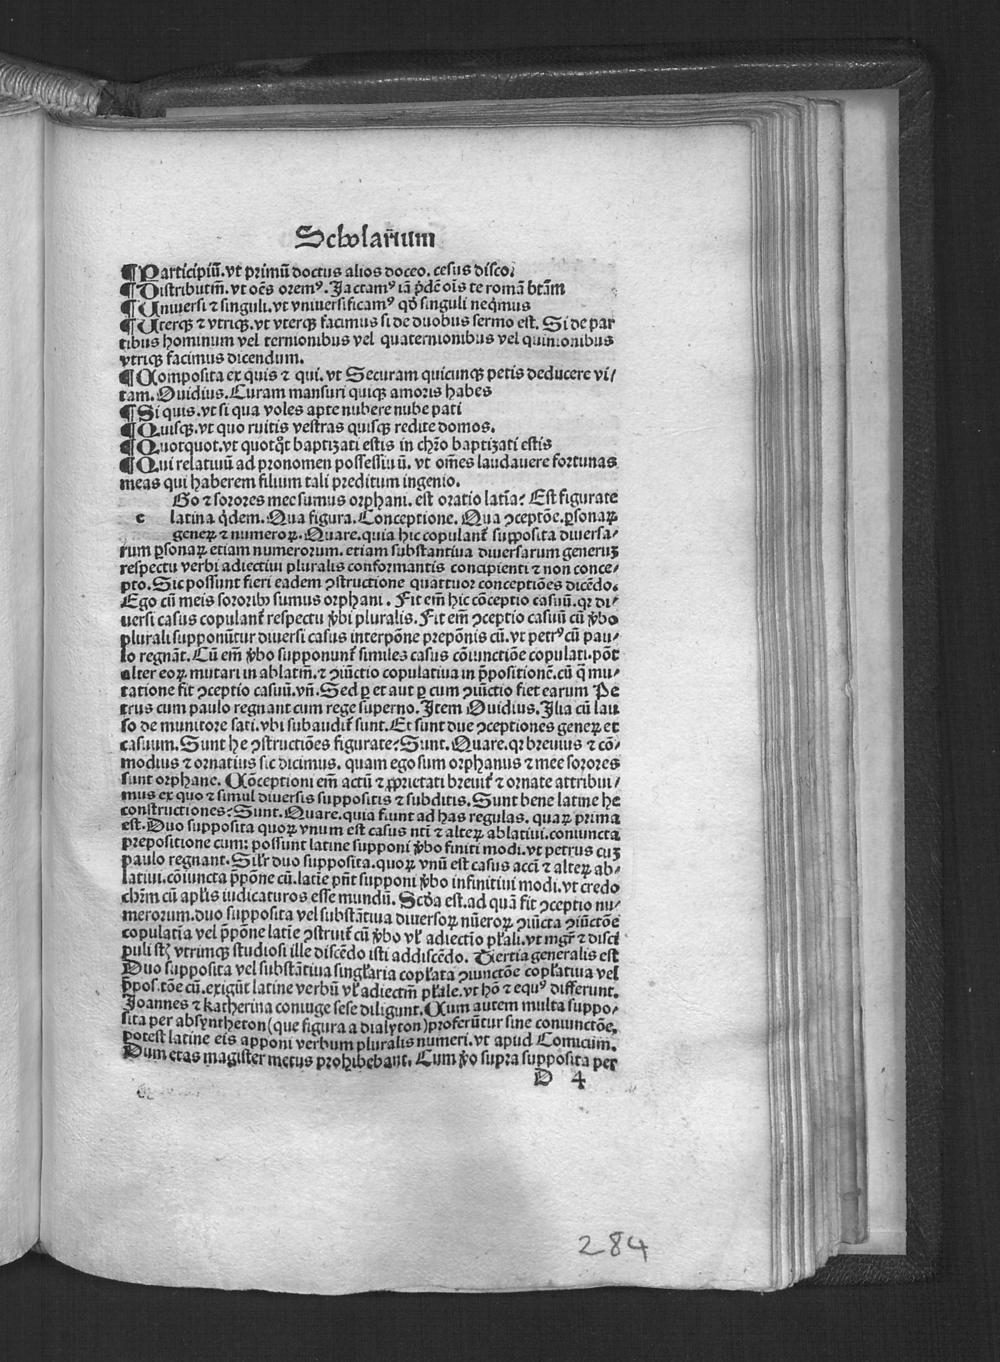 Scholariũm
¶Participiũ.vt primũ doctus alios doceo.cesus disco.
¶Distributim̃.vt oẽs oremꝰ.Jactamꝰ iã p̄dẽ oĩs te romã btãm
¶Uniuersi ⁊ singuli.vt vniuersificamꝰ qđ singuli neq̃mus
¶Uterqꝫ ⁊ vtriqꝫ.vt vterqꝫ facimus si de duobus sermo est. Si de par
tibus hominum vel ternionibus vel quaternionibus vel quinionibus
vtriqꝫ facimus dicendum.
¶Composita ex quis ⁊ qui.vt Securam quicunqꝫ petis deducere vi⸗
tam.Ouidius.Curam mansuri quiqꝫ amoris habes
¶Si quis.vt si qua voles apte nubere nube pati
¶Quisqꝫ.vt quo ruitis vestras quisqꝫ redite domos.
¶Quotquot.vt quotq̊t baptizati estis in chr̃o baptizati estis
¶Qui relatiuũ ad pronomen possessiuũ. vt om̃es laudauere fortunas
meas qui haberem filium tali preditum ingenio.
Go ⁊ sorores mee sumus orphani. est oratio latĩa? Est figurate
e latina q̇dem.Qua figura.Conceptione.Qua ꝯceptõe.ꝑsonaꝝ
geneꝝ ⁊ numeroꝝ.Quare.quia hic copulant̃ supposita diuersa⸗
rum ꝑsonaꝝ etiam numerorum.etiam substantiua diuersarum generuꝫ
respectu verbi adiectiui pluralis conformantis concipienti ⁊ non conce⸗
pto.Sic possunt fieri eadem ꝯstructione quattuor conceptiões dicẽdo.
Ego cũ meis sororibꝫ sumus orphani. Fit em̃ hic cõceptio casuũ.qꝛ di⸗
uersi casus copulant̃ respectu v̾bi pluralis.Fit em̃ ꝯceptio casuũ cũ v̾bo
plurali supponũtur diuersi casus interpõne prepõnis cũ.vt petrꝰ cũ pau⸗
lo regnãt.Cũ em̃ v̾bo supponunt̃ similes casus cõiunctiõe copulati.põt
alter eoꝝ mutari in ablatim̃.⁊ ꝯiũctio copulatiua in p̄positionẽ.cũ q̃ mu⸗
tatione fit ꝯceptio casuũ.vñ.Sed ꝑ et aut ꝑ cum ꝯiũctio fiet earum Pe
trus cum paulo regnant cum rege superno.Item Ouidius.Ilia cũ lau
so de munitore sati.vbi subaudit̃ sunt.Et sunt due ꝯceptiones geneꝝ et
casuum.Sunt he ꝯstructiões figurate?Sunt.Quare.qꝛ breuius ⁊ cõ⸗
modius ⁊ ornatius sic dicimus. quam ego sum orphanus ⁊ mee sorores
sunt orphane. Cõceptioni em̃ actũ ⁊ ꝓprietati breuit̃ ⁊ ornate attribui⸗
mus ex quo ⁊ simul diuersis suppositis ⁊ subditis.Sunt bene latine he
constructiones?Sunt.Quare.quia fiunt ad has regulas. quaꝝ prima
est.Duo supposita quoꝝ vnum est casus ntĩ ⁊ alteꝝ ablatiui.coniuncta
prepositione cum: possunt latine supponi v̾bo finiti modi.vt petrus cuꝫ
paulo regnant.Silr̃ duo supposita.quoꝝ vnũ est casus accĩ ⁊ alteꝝ ab⸗
latiui.cõiuncta p̄põne cũ.latĩe pñt supponi v̾bo infinitiui modi.vt credo
chr̃m cũ apl̃is iudicaturos esse mundũ. Scďa est.ad quã fit ꝯceptio nu⸗
merorum.duo supposita vel substãtiua diuersoꝝ nũeroꝝ ꝯiũcta ꝯiũctõe
copulatia vel p̄põne latĩe ꝯstruit̃ cũ v̾bo vl̃ adiectio pl̃ali.vt mgr̃ ⁊ disci
puli st̃ vtrimqꝫ studiosi ille discẽdo isti addiscẽdo. Tiertia generalis est
Duo supposita vel substãtiua singl̃aria copl̃ata ꝯiunctõe copl̃atiua vel
p̄positõe cũ.exigũt latine verbũ vl̃ adiectm̃ pl̃ale.vt hõ ⁊ equꝰ differunt.
Joannes ⁊ katherina coniuge sese diligunt.Cum autem multa suppo⸗
sita per absyntheton(que figura a dialyton)proferũtur sine coniunctõe,
potest latine eis apponi verbum pluralis numeri.vt apud Comicum.
Dum etas magister metus prohibebant. Cum v̾o supra supposita per
D 4
284